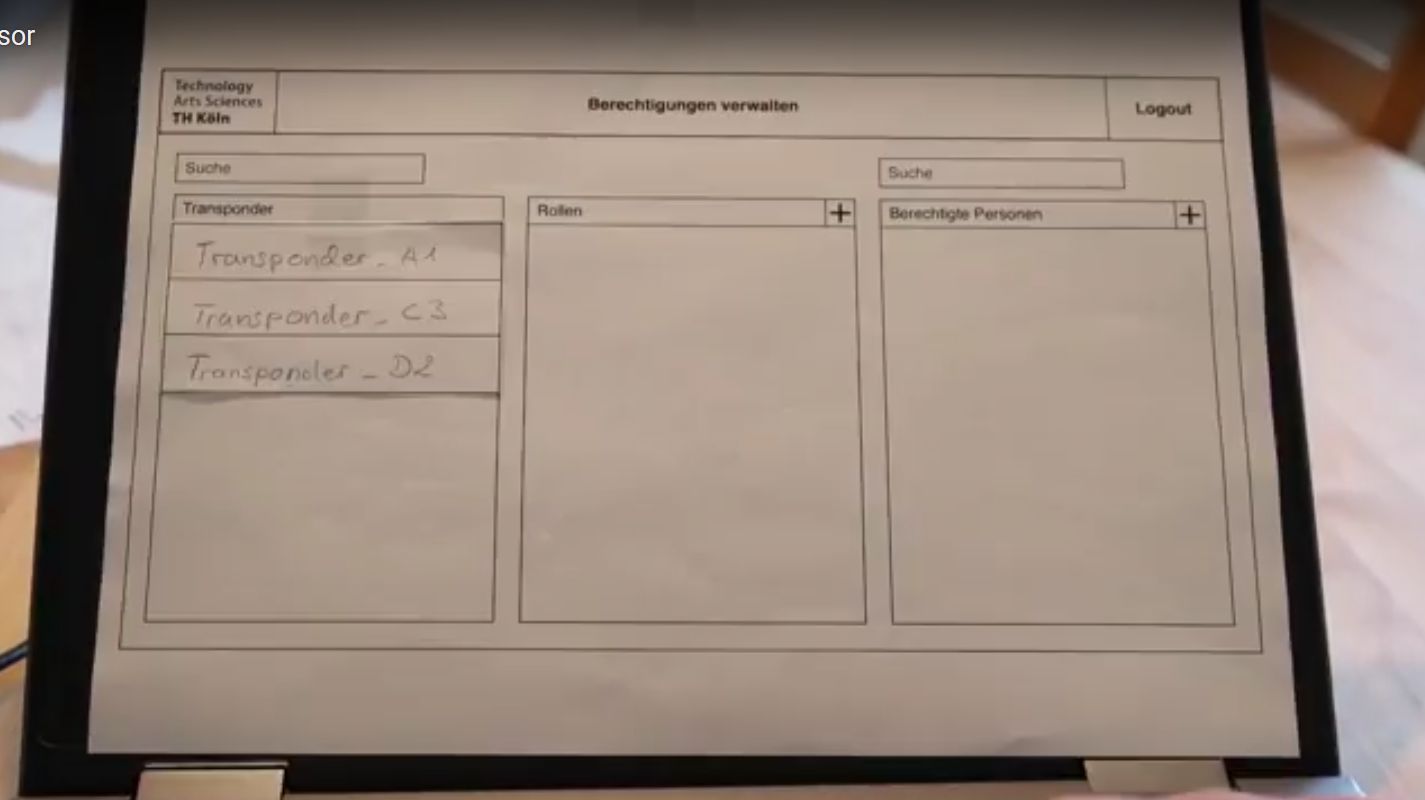 sor
Technology
Arts Sciences
TH Köln
Berechtigungen verwalten
Logout
Suche
Suche
Transponder
Transponder_A1
Transponder_C3
Transponder_D2
Rollen +
Berechtigte Personen +